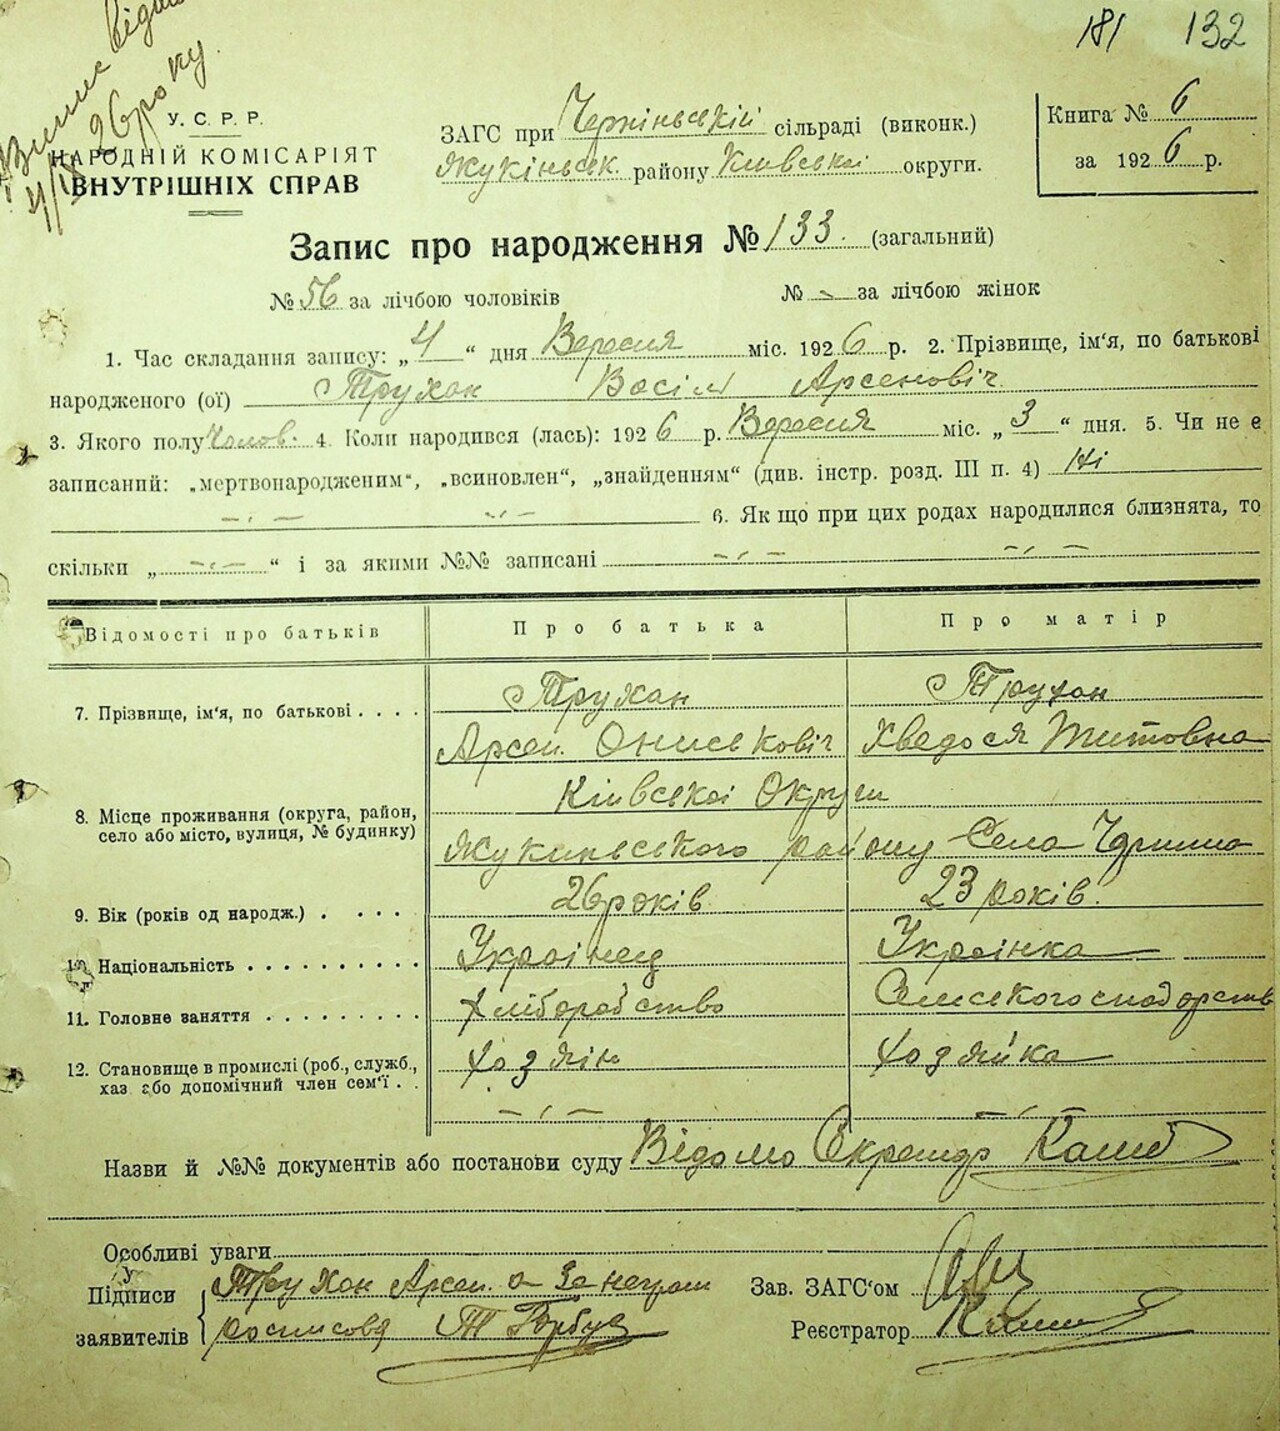 181 132
Випис видан
4/IX 26 року
У.С.Р.Р.
НАРОДНІЙ КОМІСАРІЯТ
ВНУТРІШНІХ СПРАВ
ЗАГС при Чернінській сільраді (виконк.)
Жукінськ. району Київської округи.
Книга № 6
за 1926 р.
Запис про народження № 133. (загальний)
№ 56 за лічбою чоловіків № - за лічбою жінок
1. Час складання запису: „4“ дня Вересня міс. 1926 р. 2. Прізвище, ім'я, по батькові
народженого (ої) Трухан Васіль Арсеновіч
3. Якого полу Чолов. 4. Коли народився (лась): 1926 р. Вересня міс. „3“ дня. 5. Чи не є
записаний: „мертвонародженим“, „всиновлен“, „знайденням“ (див. інстр. розд. III п. 4) Ні
6. Як що при цих родах народилися близнята, то
скільки „ “ і за якими №№ записані
Відомості про батьків Про батька Про матір
7. Прізвище, ім'я, по батькові . . . . Трухан Трухан
Арсен. Ониськовіч Хведося Титовна
8. Місце проживання (округа, район, село або місто, вулиця, № будинку) Київської Округи
Жукинського району Села Чернина
9. Вік (років од народж.) . . . . 26 років 23 років.
10. Національність . . . . . . . . . . Українец Українка
11. Головне заняття . . . . . . . . . Хліборобство Сельского сподорств
12. Становище в промислі (роб., служб., Хозяїн Хозяйка
хаз або допомічний член сем'ї . .
Назви й №№ документів або постанови суду Відомо Секретдр
Особливі уваги
Підписи Трухан Арсен. а за неграм
заявителів росписовд Т Горбуз
Зав. ЗАГС'ом
Реєстратор